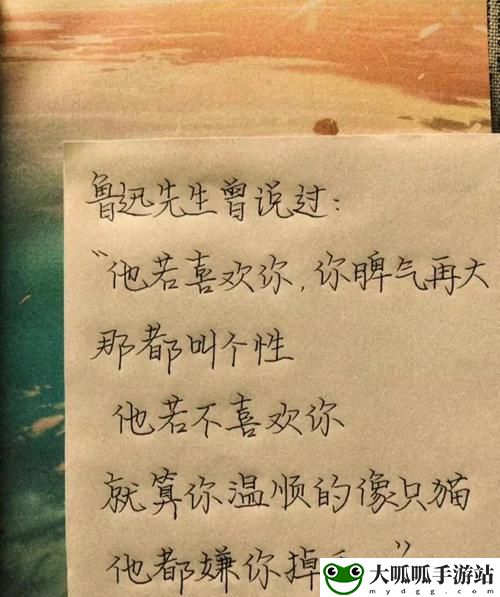 鲁迅先生曾说过：
“他若喜欢你，你脾气再大
那都叫个性
他若不喜欢你
就算你温顺的像只猫
他都嫌你掉”
大呱呱手游站
www.mydgg.com